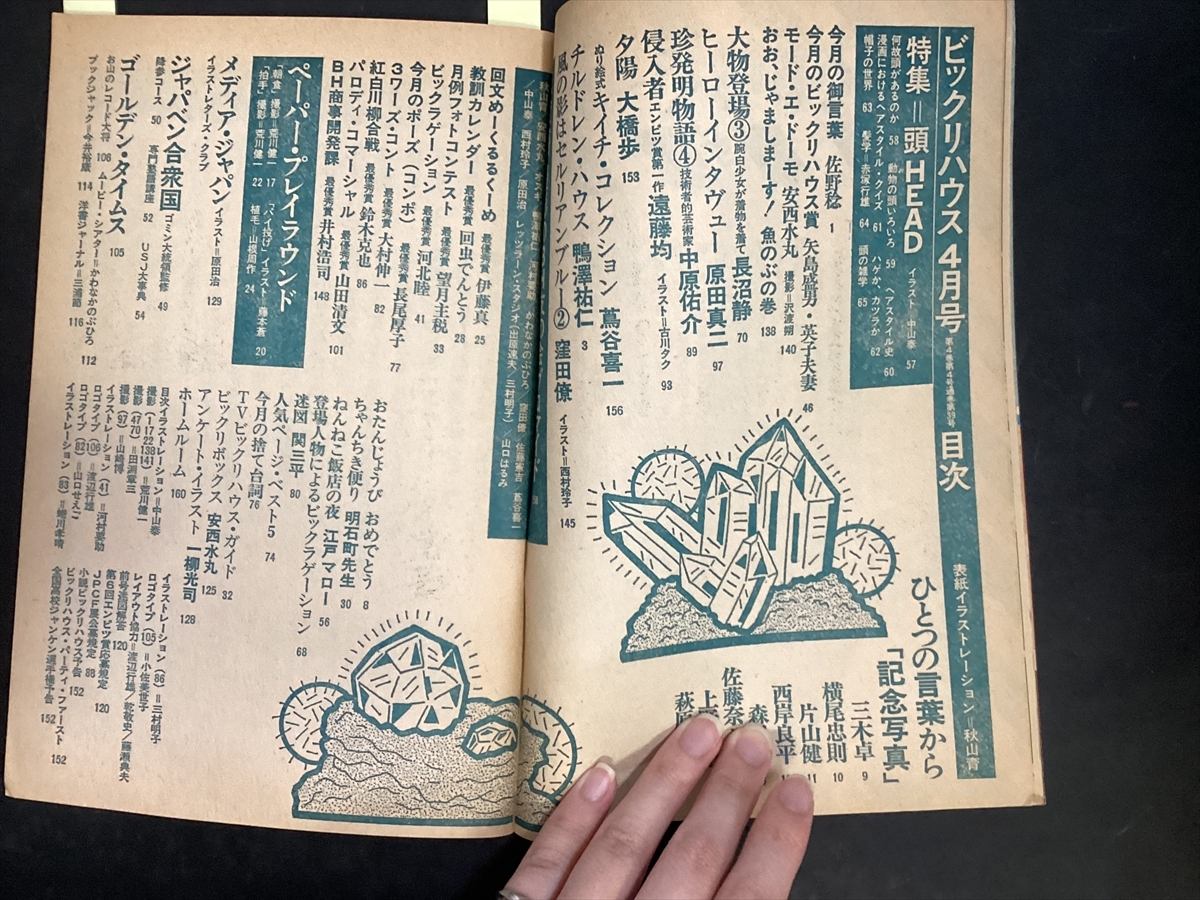 ビックリハウス 4月号 第4巻第4号通巻第39号 目次
表紙イラストレーション=秋山育
特集=頭 HEAD イラスト=中山泰 57
何故頭があるのか 58 動物の頭いろいろ 59 ヘアスタイル史 60
漫画におけるヘアスタイル・クイズ 61 ハゲか、カツラか 62
帽子の世界 63 髪学=赤塚行雄 64 頭の雑学 65
今月の御言葉 佐野稔 1
今月のビックリハウス賞 矢島盛男・英子夫妻 46
モード・エ・ドーモ 安西水丸 撮影=沢渡朔 140
おお、じゃましまーす! 魚のぶの巻 138
大物登場③ 腕白少女が着物を着て 長沼静 70
ヒーローインタヴュー 原田真二 97
珍発明物語④ 技術者的芸術家 中原佑介 89
侵入者 エンピツ賞第一作 遠藤均 イラスト=古川タク 93
夕陽 大橋歩 153
ぬり絵式 キイチ・コレクション 蔦谷喜一 156
チルドレン・ハウス 鴨澤祐仁 3
風の影はセルリアンブルー② 窪田僚 イラスト=西村玲子 145
ひとつの言葉から
「記念写真」
三木卓 9
横尾忠則 10
片山健 11
西岸良平
森
佐藤奈
上
萩原
中山泰 西村玲子/原田治/レッツラーン・スタジオ(出屋遠夫/三村明子)/山口はるみ
回文めーくるるくーめ 最優秀賞 伊藤真 25
教訓カレンダー 最優秀賞 回虫でんとう 28
月例フォトコンテスト 最優秀賞 望月主税 33
ビックラゲーション 最優秀賞 河北睦 41
今月のポーズ(コンポ) 最優秀賞 長尾厚子 77
3ワーズ・コント 最優秀賞 大村伸一 82
紅白川柳合戦 最優秀賞 鈴木克也 86
パロディ・コマーシャル 最優秀賞 山田清文 101
BH商事開発課 最優秀賞 井村浩司 148
ペーパー・プレイラウンド
「朝食」撮影=荒川健一 17 「パイ投げ」イラスト=藤本蒼 20
「拍手」撮影=荒川健一 22 植毛=山根周作 24
メディア・ジャパン イラスト=原田治 129
イラストレターズ・クラブ
ジャパベン合衆国 ゴミン大統領監修 49
降参コース 50 専門塾講座 52 USJ大事典 54
ゴールデン・タイムス 105
お山のレコード大将 106 ムービー・シアター=かわなかのぶひろ 112
ブックジャック=今井裕康 114 洋書ジャーナル=三浦雅 116
おたんじょうび おめでとう 8
ちゃんちき便り 明石町先生 30
ねんねこ飯店の夜 江戸マロー 56
登場人物によるビックラゲーション 68
迷図 関三平 80
人気ページ・ベスト5 74
今月の捨て台詞 76
TVビックリハウス・ガイド 32
ビックリボックス 安西水丸 125
アンケート・イラスト 一柳光司 128
ホームルーム 160
目次イラストレーション=中山泰
撮影(1 17 22 138 141)=荒川健一
撮影(4 70)=田淵章三
撮影(97)=山崎博
イラストレーション(41)=河村要助
ロゴタイプ(106)=渡辺行雄
ロゴタイプ(82)=山口せえこ
イラストレーション(83)=蜷川孝晴
イラストレーション(86)=三村明子
ロゴタイプ(105)=小佐美世子
レイアウト協力=渡辺行雄/乾敬史/藤瀬典夫
前号迷図解答 120
第6回エンピツ賞応募規定 120
JPCF展公募規定 88
小説ビックリハウス予告 152
ビックリハウス・パーティ・ファースト
全国高校ジャンケン選手権予告 152